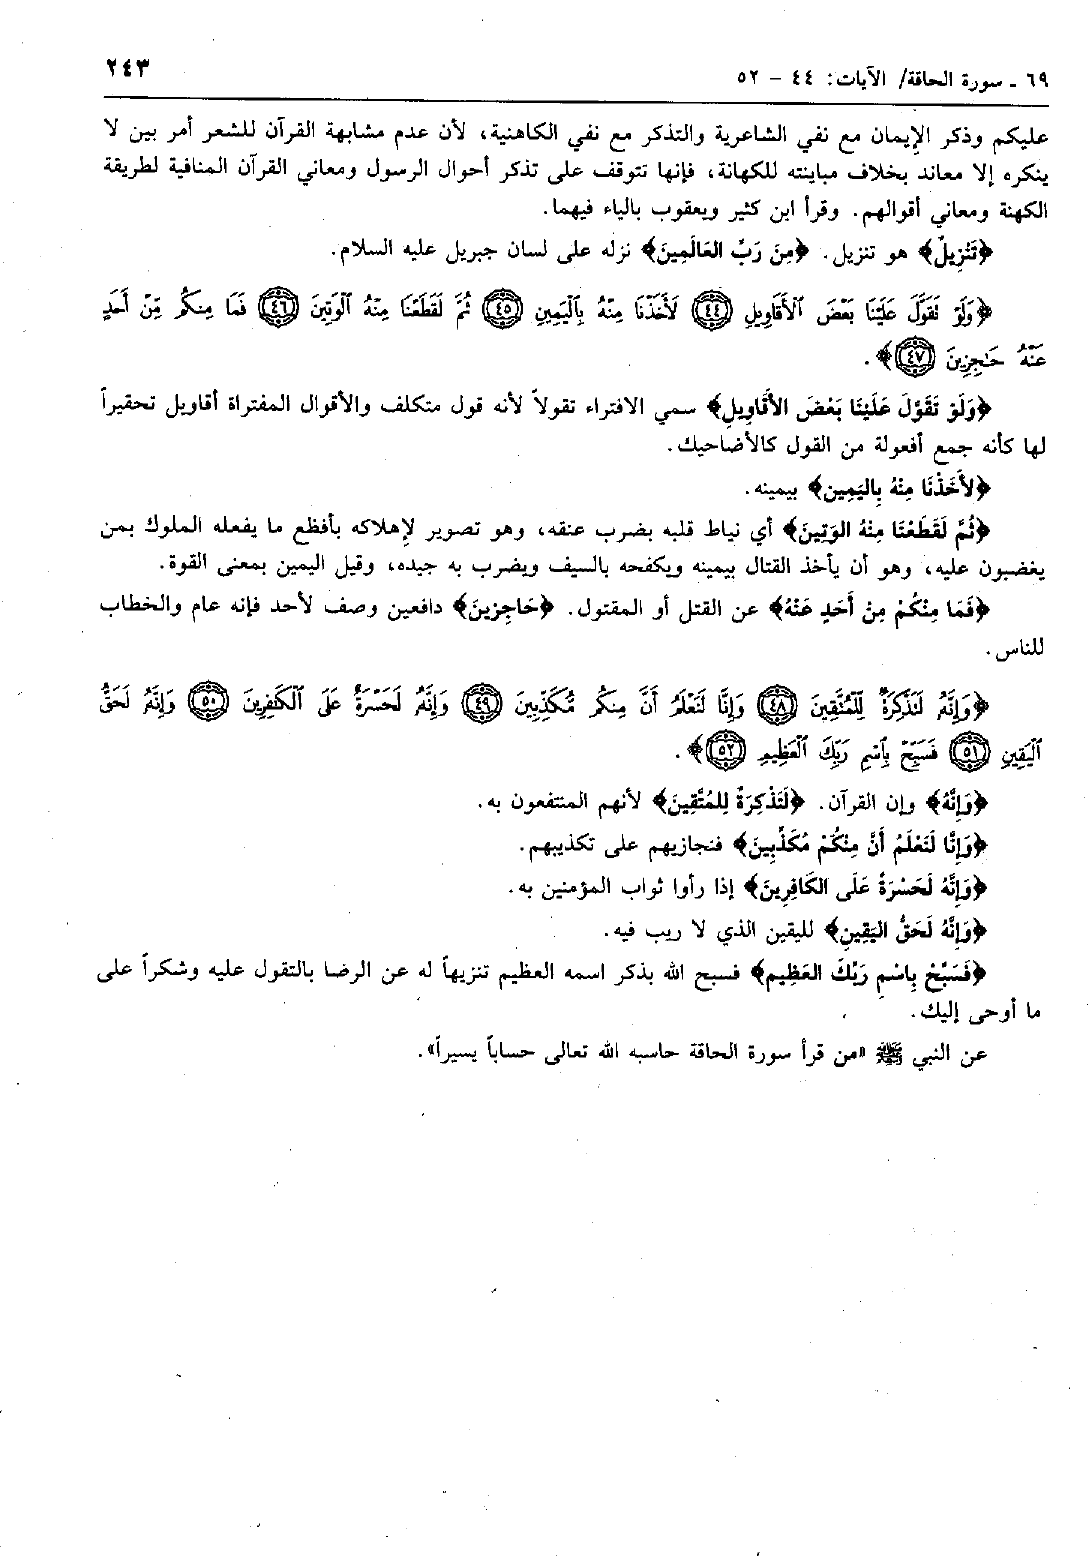 ٦٩ ـ سورة الحاقة/ الآيات: ٤٤ – ٥٢
٢٤٣
عليكم وذكر الإيمان مع نفي الشاعرية والتذكر مع نفي الكاهنية، لأن عدم مشابهة القرآن للشعر أمر بين لا
ينكره إلا معاند بخلاف مباينته للكهانة، فإنها تتوقف على تذكر أحوال الرسول ومعاني القرآن المنافية لطريقة
الكهنة ومعاني أقوالهم. وقرأ ابن كثير ويعقوب بالياء فيهما.
﴿تَنْزِيلٌ﴾ هو تنزيل. ﴿مِنَ رَبِّ العَالَمِينَ﴾ نزله على لسان جبريل عليه السلام.
﴿وَلَوْ نَقَوَّلَ عَلَيْنَا بَعْضَ ٱلْأَقَاوِيلِ ﴿٤٤﴾ لَأَخَذْنَا مِنْهُ بِٱلْيَمِينِ ﴿٤٥﴾ ثُمَّ لَقَطَعْنَا مِنْهُ ٱلْوَتِينَ ﴿٤٦﴾ فَمَا مِنكُم مِّنْ أَحَدٍ
عَنْهُ حَـٰجِزِينَ ﴿٤٧﴾﴾.
﴿وَلَوْ تَقَوَّلَ عَلَيْنَا بَعْضَ الأَقَاوِيلِ﴾ سمي الافتراء تقولاً لأنه قول متكلف والأقوال المفتراة أقاويل تحقيراً
لها كأنه جمع أفعولة من القول كالأضاحيك.
﴿لأَخَذْنَا مِنْهُ بِاليَمِينِ﴾ بيمينه.
﴿ثُمَّ لَقَطَعْنَا مِنْهُ الوَتِينَ﴾ أي نياط قلبه بضرب عنقه، وهو تصوير لإهلاكه بأفظع ما يفعله الملوك بمن
يغضبون عليه، وهو أن يأخذ القتال بيمينه ويكفحه بالسيف ويضرب به جيده، وقيل اليمين بمعنى القوة.
﴿فَمَا مِنْكُمْ مِنْ أَحَدٍ عَنْهُ﴾ عن القتل أو المقتول. ﴿حَاجِزِينَ﴾ دافعين وصف لأحد فإنه عام والخطاب
للناس.
﴿وَإِنَّهُۥ لَتَذْكِرَةٌ لِّلْمُتَّقِينَ ﴿٤٨﴾ وَإِنَّا لَنَعْلَمُ أَنَّ مِنكُم مُّكَذِّبِينَ ﴿٤٩﴾ وَإِنَّهُۥ لَحَسْرَةٌ عَلَى ٱلْكَـٰفِرِينَ ﴿٥٠﴾ وَإِنَّهُۥ لَحَقُّ
ٱلْيَقِينِ ﴿٥١﴾ فَسَبِّحْ بِٱسْمِ رَبِّكَ ٱلْعَظِيمِ ﴿٥٢﴾﴾.
﴿وَإِنَّهُ﴾ وإن القرآن. ﴿لَتَذْكِرَةٌ لِلمُتَّقِينَ﴾ لأنهم المنتفعون به.
﴿وَإِنَّا لَنَعْلَمُ أَنَّ مِنْكُمْ مُكَذِّبِينَ﴾ فنجازيهم على تكذيبهم.
﴿وَإِنَّهُ لَحَسْرَةٌ عَلَى الكَافِرِينَ﴾ إذا رأوا ثواب المؤمنين به.
﴿وَإِنَّهُ لَحَقُّ اليَقِينِ﴾ لليقين الذي لا ريب فيه.
﴿فَسَبِّحْ بِاسْمِ رَبِّكَ العَظِيمِ﴾ فسبح الله بذكر اسمه العظيم تنزيهاً له عن الرضا بالتقول عليه وشكراً على
ما أوحى إليك.
عن النبي ﷺ «من قرأ سورة الحاقة حاسبه الله تعالى حساباً يسيراً».